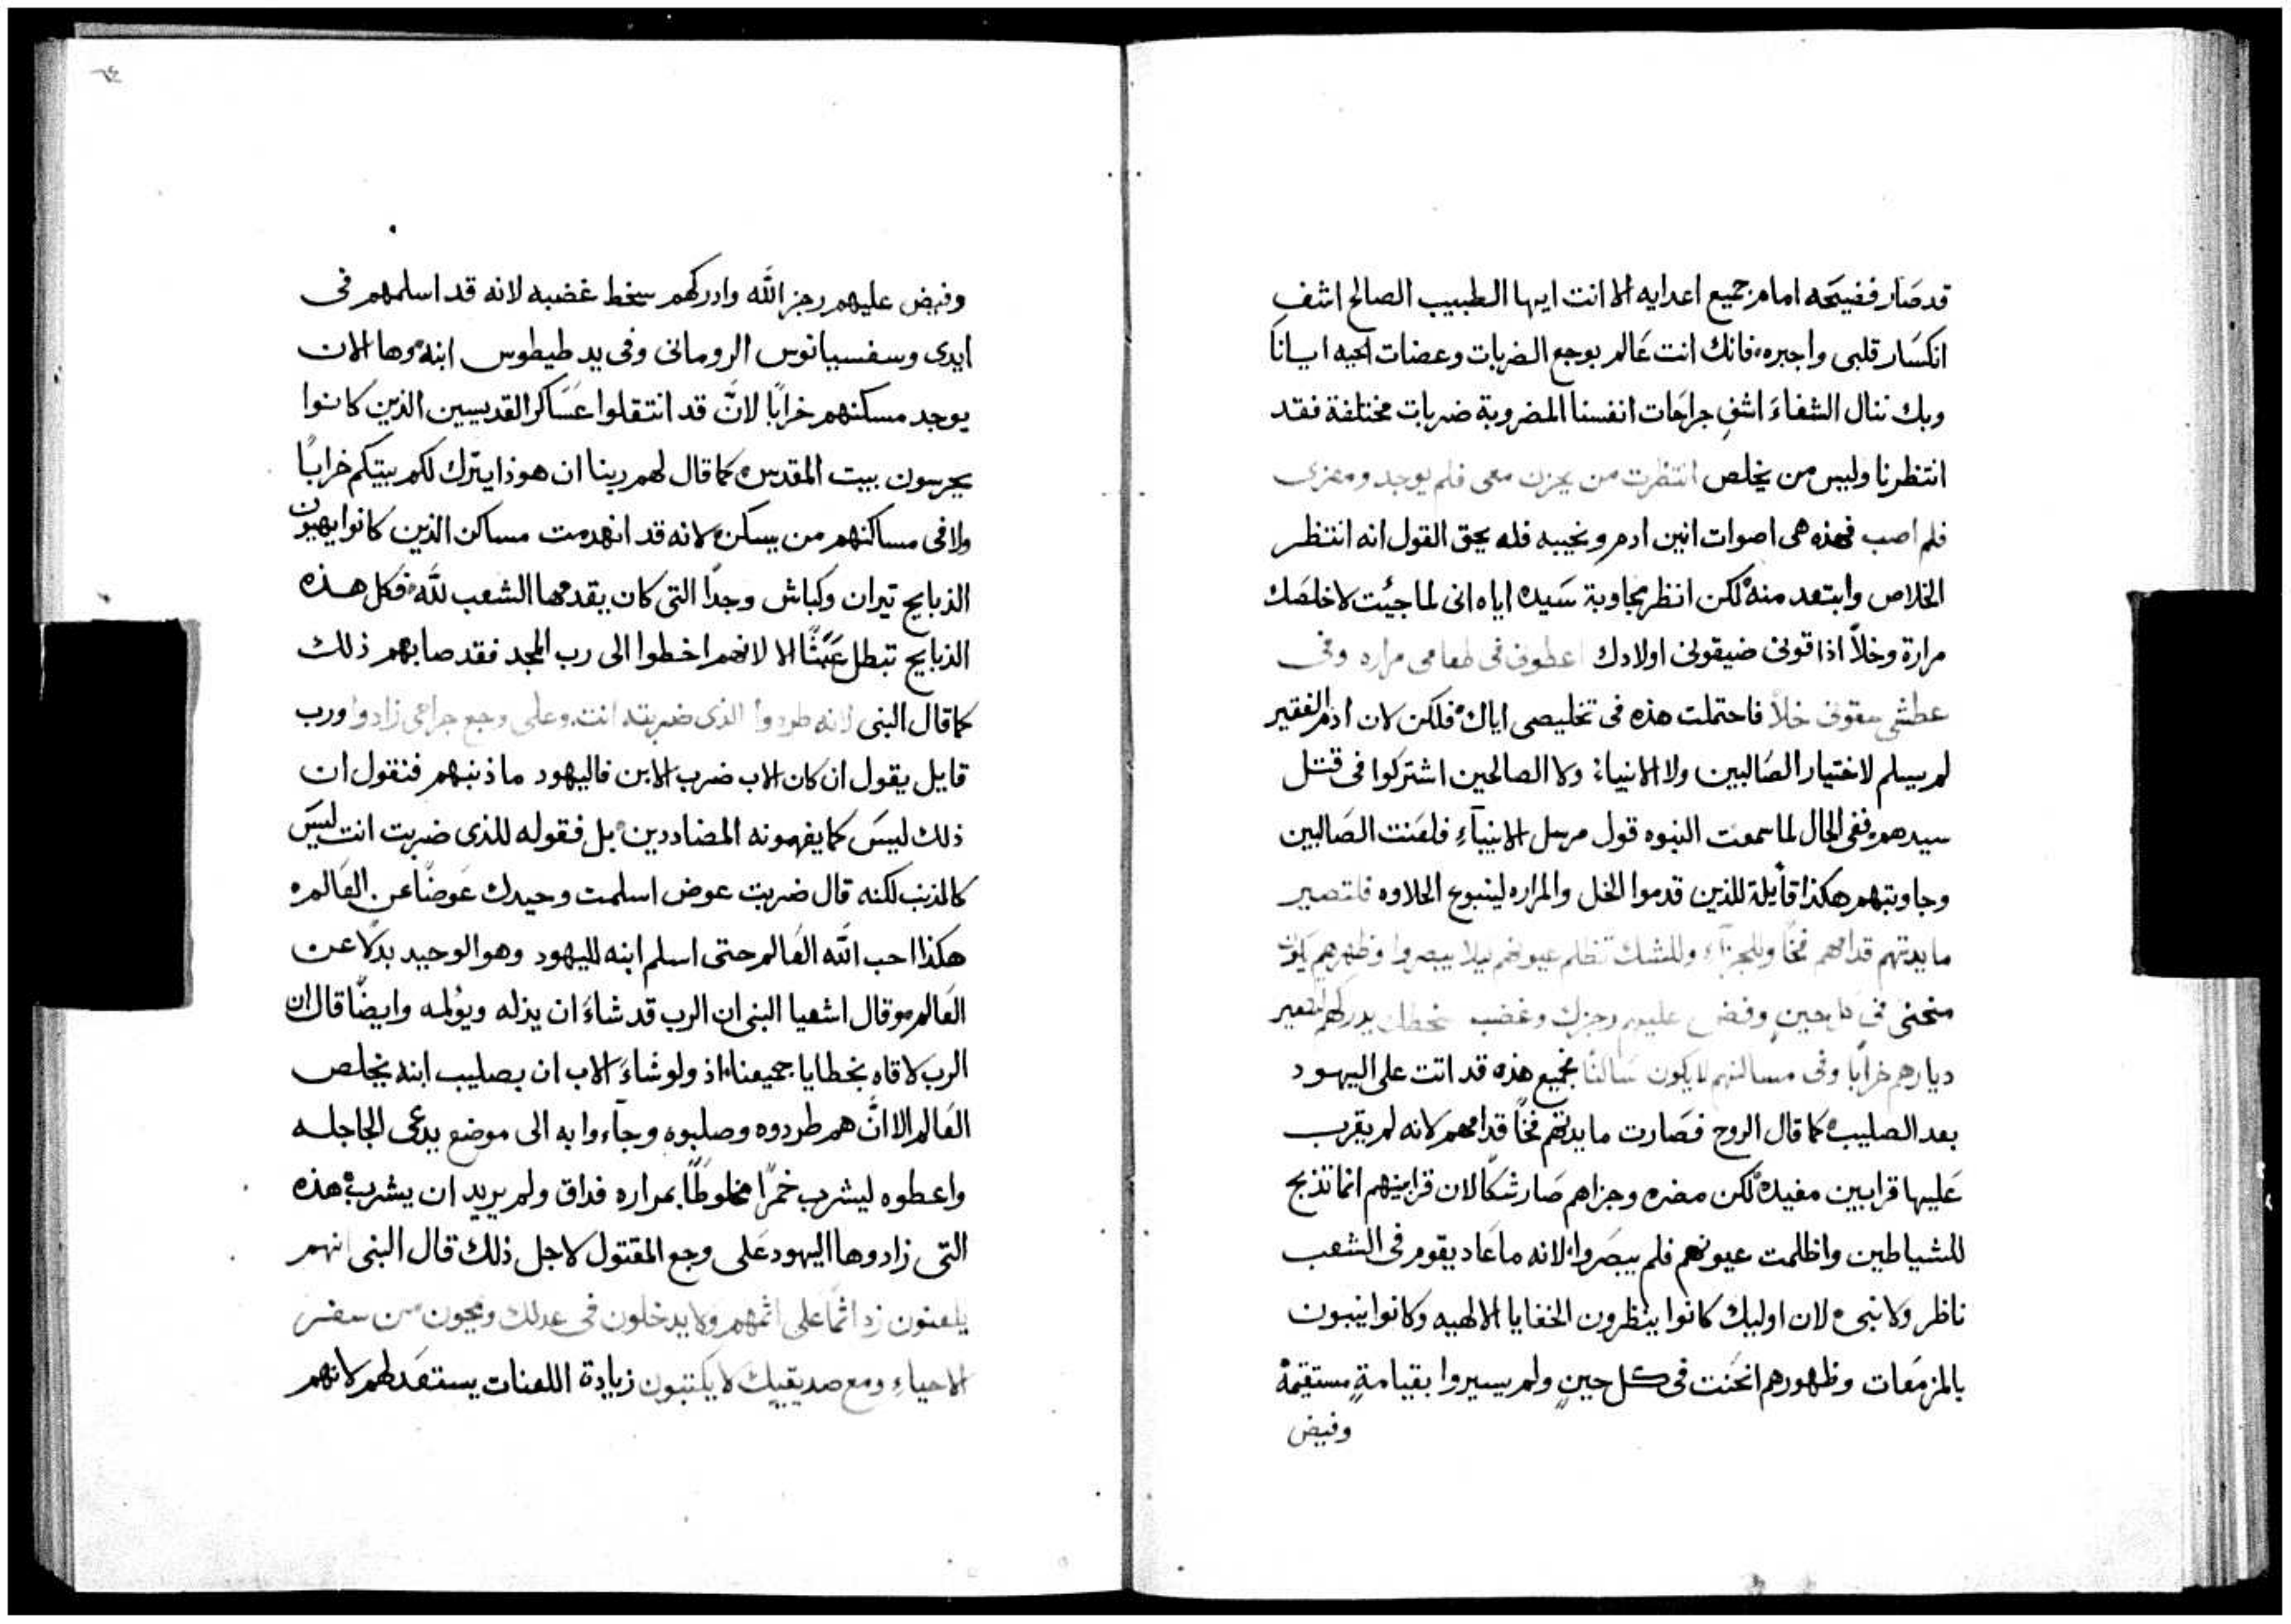 قد صَار فضيحَه امام جميع اعدايه الا انت ايها الطبيب الصالح اشفِ
انكسَار قلبى واجبره، فانك انت عَالم بوجع الضربات وعضات الحيه ايانا
وبك ننال الشفاءَ اشفِ جراحَات انفسنا المضروبة ضربات مختلفة فقد
انتظرنا وليس من يخلص انتظرت من يحزن معى فلم يوجد ومعزى
فلم اصب فهذه هى اصوات انين ادم ونحيبه فله يحق القول انه انتظر
الخلاص وابتعد منه لكن انظر مجاوبة سَيده اياه انى لما جيئت لاخلصَك
مرارة وخلاً اذاقونى ضيقونى اولادك اعطونى فى طعامى مراره وفى
عطشى سقونى خلاً فاحتملت هذه فى تخليصى اياك فلكن لان ادم الفقير
لم يسلم لاختيار الصَالبين ولا الانبياء ولا الصالحين اشتركوا فى قتل
سيدهم ففى الحال لما سمعت النبوه قول مرسل الانبيآءِ فلعَنت الصَالبين
وجاوبتهم هكذا قأيلة للذين قدموا الخل والمراره لينبوع الحلاوه فلتصير
مايدتهم قدامهم فخًا وللجزآء وللشك تظلم عيونهم ليلا يبصروا وظهرهم يكون
منحنى فى كل حين وفض عليهم رجزك وغضب سخطك يدركهم لتصير
ديارهم خرابًا وفى مساكنهم لا يكون سَاكنًا فجميع هذه قد اتت على اليهود
بعد الصليب كما قال الروح فصَارت مايدتهم فخًا قدامهم لانه لم يقرب
عَليها قرابين مفيده لكن مضره وجزاهم صَار شكًا لان قرابينهم انما تذبح
للشياطين واظلمت عيونهم فلم يبصَروا لانه ما عَاد يقوم فى الشعب
ناظر ولا نبى لان اوليك كانوا ينظرون الخفايا الالهيه وكانوا ينبون
بالمزمَعات وظهورهم انحَنت فى كل حينٍ ولم يسيروا بقيامةٍ مستقيمة
وفيض
٦٤
وفيض عليهم رجز الله وادركهم سخط غضبه لانه قد اسلمهم فى
ايدى وسفسيانوس الرومانى وفى يد طيطوس ابنه وها الان
يوجد مسكنهم خرابًا لانَّ قد انتقلوا عسَاكر القديسين الذين كانوا
يحرسون بيت المقدس كما قال لهم ربنا ان هوذا يترك لكم بيتكم خرابًا
ولا فى مساكنهم من يسكن لانه قد انهدمت مساكن الذين كانوا يهيون
الذبايح تيران وكباش وجدًا التى كان يقدمها الشعب لله فكل هذه
الذبايح تبطل عَبثًا الا لانهم اخطوا الى رب المجد فقد صابهم ذلك
كما قال النبى لانه طردوا الذى ضربته انت وعلى وجع جراحى زادوا ورب
قايل يقول ان كان الاب ضرب الابن فاليهود ما ذنبهم فنقول ان
ذلك ليسَ كما يفهمونه المضاددين بل فقوله للذى ضربت انت ليسَ
كالمذنب لكنه قال ضربت عوض اسلمت وحيدك عَوضًا عن العَالم
هكذا احب الله العَالم حتى اسلم ابنه لليهود وهو الوحيد بدلًا عن
العَالم وقال اشعيا النبى ان الرب قد شاءَ ان يذله ويؤلمه وايضًا قال ان
الرب لاقاه بخطايا جميعنا اذ ولو شاءَ الاب ان بصليب ابنه يخلص
العَالم الا انَّ هم طردوه وصلبوه وجآءوا به الى موضع يدعى الجاجله
واعطوه ليشرب خمرًا مخلوطًا بمراره فداق ولم يريد ان يشرب هذه
التى زادوها اليهود عَلى وجع المقتول لاجل ذلك قال النبى انهم
يلعنون زد اثمًا على اثمهم ولا يدخلون فى عدلك ويمحون من سفر
الاحياءِ ومع صديقيك لا يكتبون زيادة اللعنات يستعَد لهم لانهم